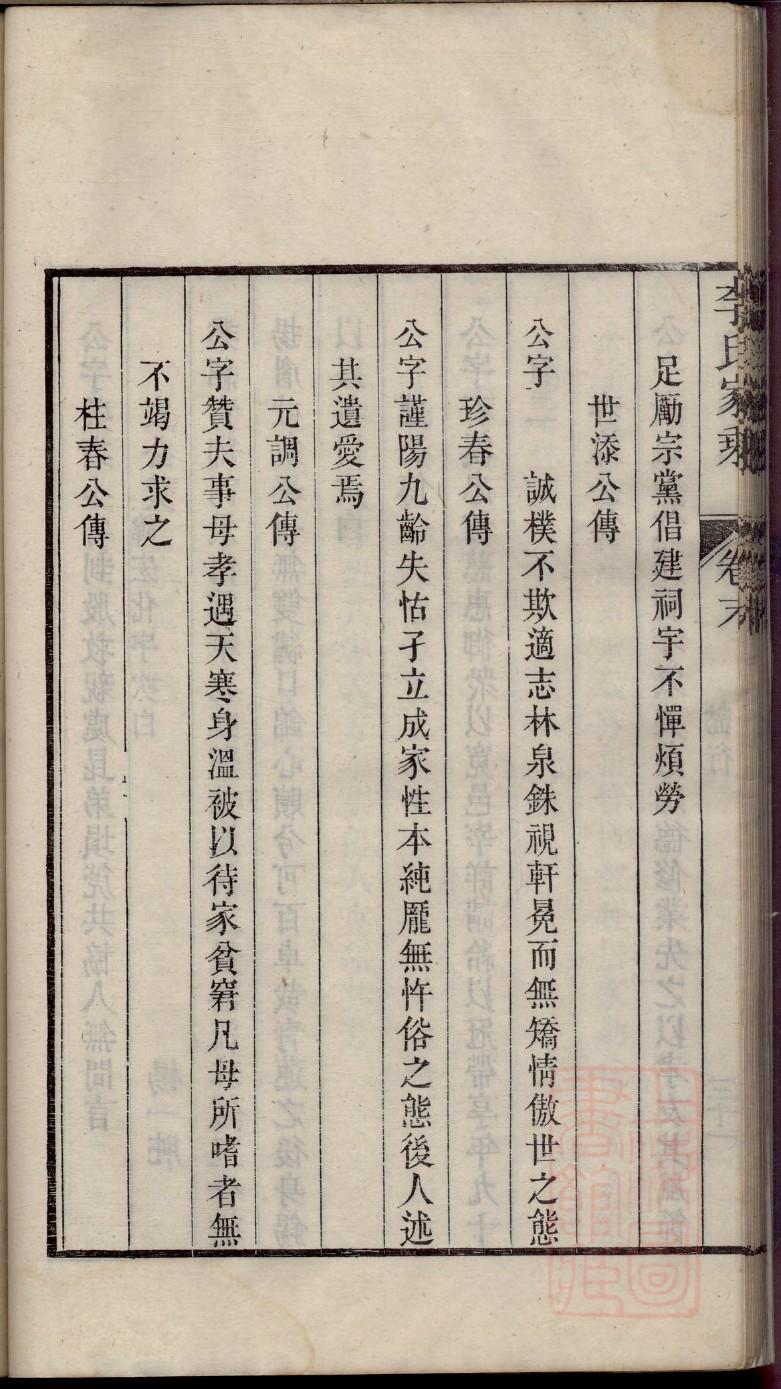 李氏家乘 卷末
足勵宗黨倡建祠宇不憚煩勞
世添公傳
公字　　誠樸不欺適志林泉銖視軒冕而無矯情傲世之態
珍春公傳
公字謹陽九齡失怙孑立成家性本純龎無忤俗之態後人述
其遺愛焉
元調公傳
公字贊夫事母孝遇天寒身溫被以待家貧窘凡母所嗜者無
不竭力求之
柱春公傳